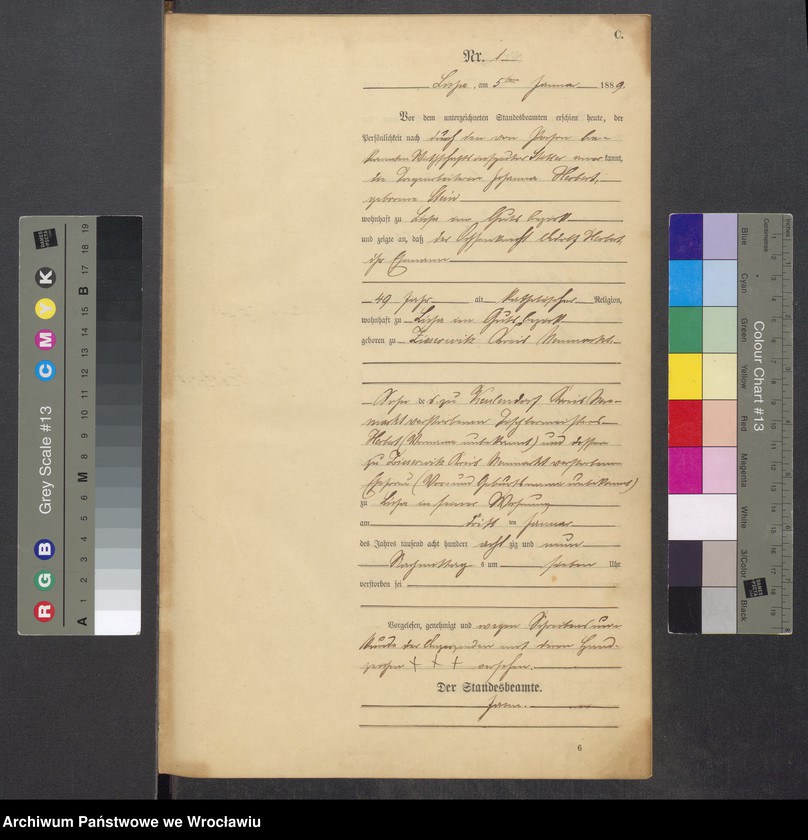 C.
Nr. 1
Lissa, am 5ten Januar 1889.
Vor dem unterzeichneten Standesbeamten erschien heute, der
Persönlichkeit nach durch den von Person be-
kannten kannt,
die Tagearbeiterin Johanna Herbst,
geborene Stein
wohnhaft zu Lissa im Gutsbezirk
und zeigte an, daß der Ochsenknecht Herbst,
ihr Ehemann
49 Jahr alt Katholischer Religion,
wohnhaft zu Lissa im Gutsbezirk
geboren zu Kreis Neumarkt
Sohn des zu Keulendorf Kreis Neu-
markt verstorbenen
Herbst (Vorname unbekannt) und dessen
zu Kreis Neumarkt verstorbenen
Ehefrau (Vor und Geburtsname unbekannt)
zu Lissa in seiner Wohnung
am dritten Januar
des Jahres tausend acht hundert achtzig und neun
Nachmittag s um sieben Uhr
verstorben sei
Vorgelesen, genehmigt und wegen Schreibensun-
kunde der Anzeigenden mit deren Hand-
zeichen + + + versehen.
Der Standesbeamte.
6
Grey Scale #13
A 1 2 3 4 5 6 M 8 9 10 11 12 13 14 15 B 17 18 19
R G B C M Y K
Colour Chart #13
Blue
Cyan
Green
Yellow
Red
Magenta
White
3/Color
Black
Centimetres
Inches
Archiwum Państwowe we Wrocławiu